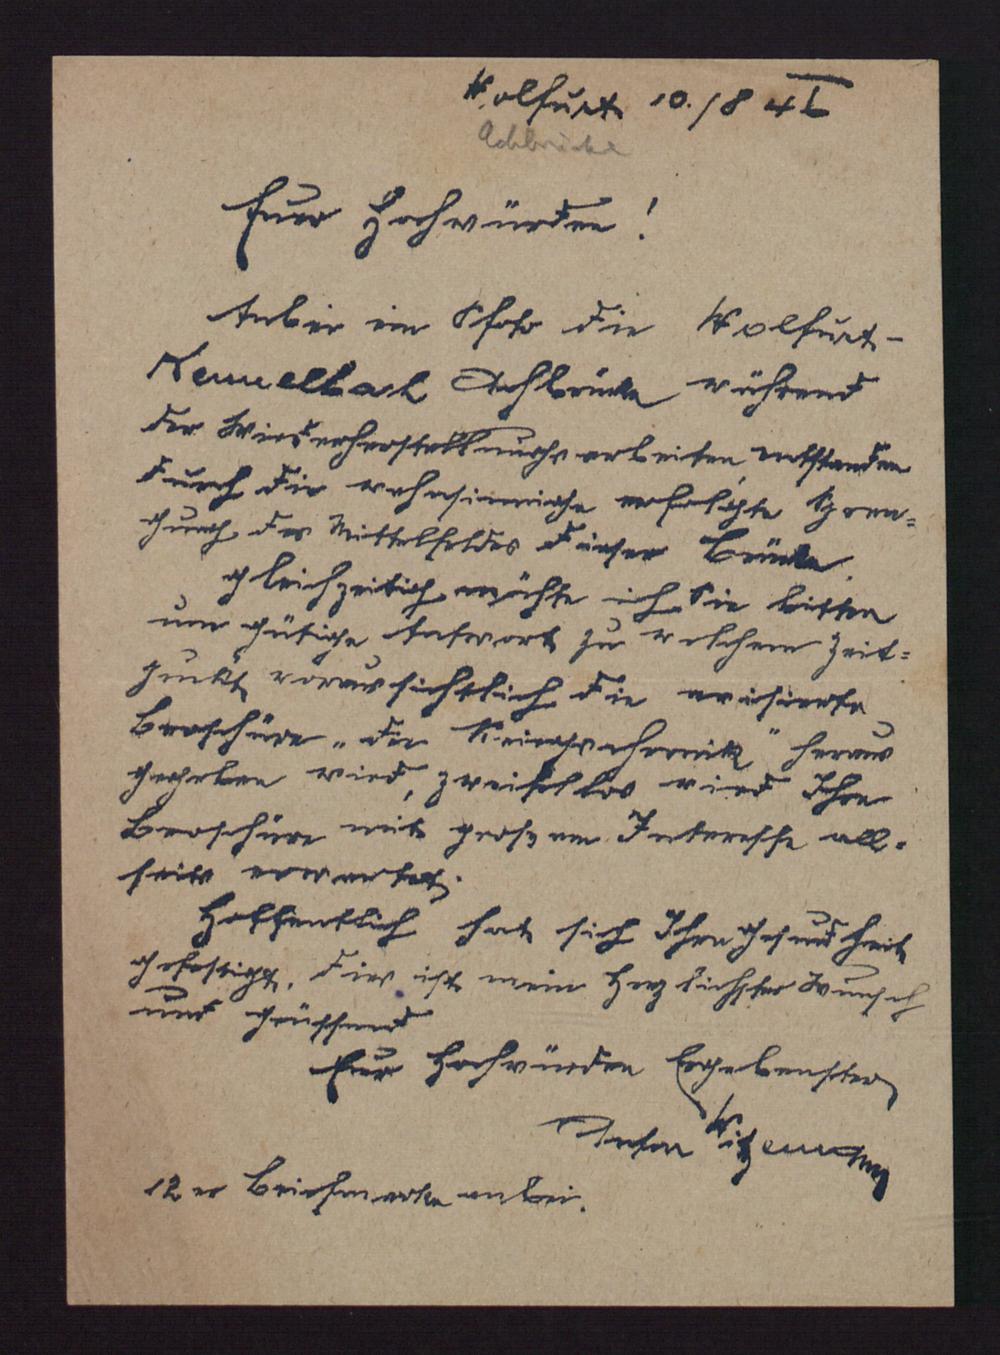 Wolfurt 10./8 46
Achbrücke
Euer Hochwürden!
Anbei ein Pfoto die Wolfurt-
Kennelbach Achbrücke während
der Wiederherstellungsarbeiten, entstanden
durch die wahnsinnige erfolgte Spren=
gung des Mittelfeldes dieser Brücke.
Gleichzeitig möchte ich Sie bitten
um gütige Antwort zu welchem Zeit=
punkt voraussichtlich die avisierte
Broschüre "die Kriegschronik" heraus
gegeben wird, zweifellos wird Ihre
Broschüre mit grossem Interesse all=
seits erwartet.
Hoffentlich hat sich Ihre Gesundheit
gefestigt, dies ist mein herzlichster Wunsch
und grüssend
Euer Hochwürden Ergebenster
Anton
12er Briefmarke anbei.